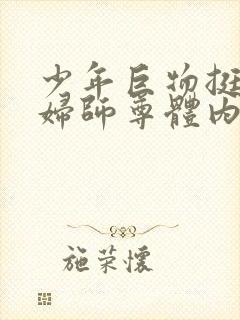 少年巨物挺
婦師尊體内
施荣懷